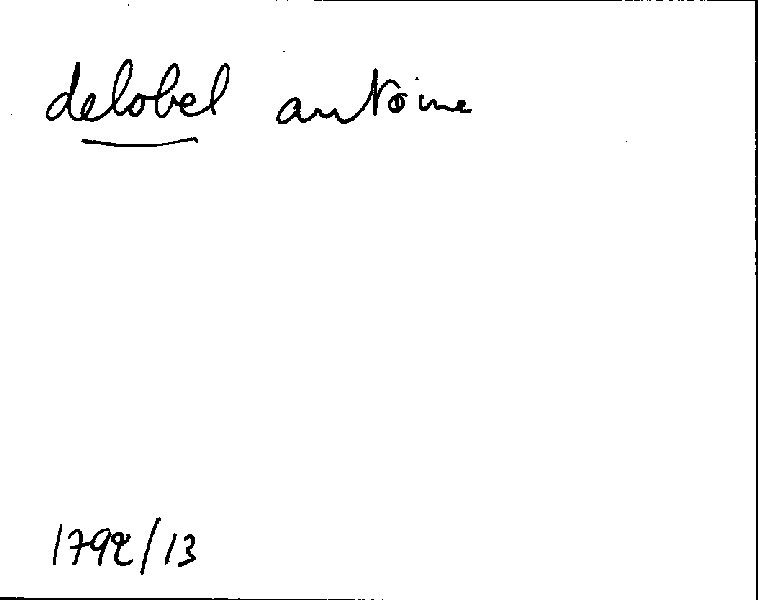 delobel antoine
1792/13